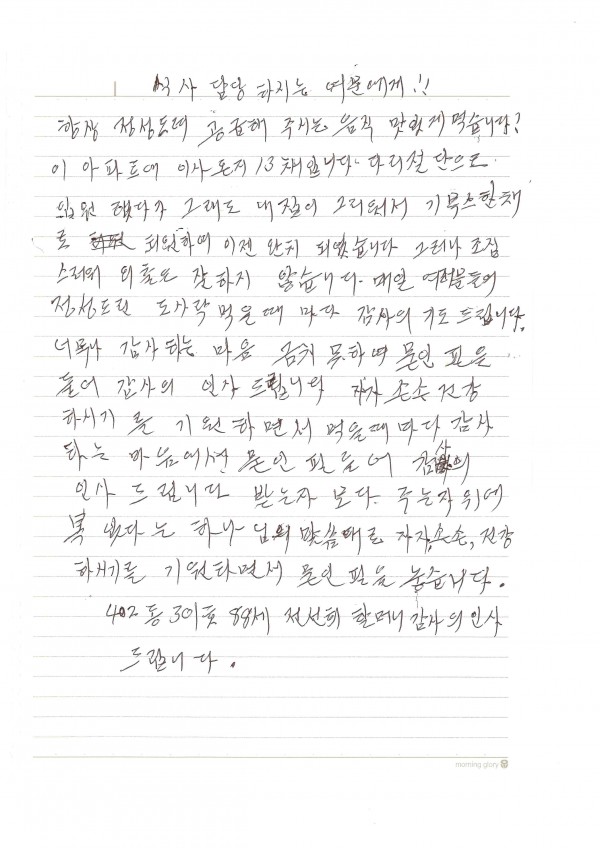 식사 담당 하지는 여러분에게!!
항상 정성도여 공급해 주시는 음식 맛있게 먹습니다!
이 아파트에 이사 온지 13채입니다. 다리절단으로
입원 했다가 그래도 내집이 그리워서 기부스한채
로 퇴원하여 이젠 완치 되였습니다 그러나 조심
스러워 외출은 잘하지 않습니다. 매일 여러분들의
정성드린 도시락 먹을때 마다 감사의 기도 드립니다.
너무나 감사하는 마음 금치 못하여 문인 필을
들어 감사의 인사 드립니다 자자 손손 건강
하시기 를 기원하면서 먹을때마다 감사
하는 마음에서 문인 필을 들어 감사의
인사 드립니다 받는자 보다. 주는자 위에
복 있다는 하나님의 말씀대로 자자손손, 건강
하시기를 기원하면서 문인 필을 놓습니다.
402동 301호 88세 전선희 할머니 감사의 인사
드립니다.
morning glory